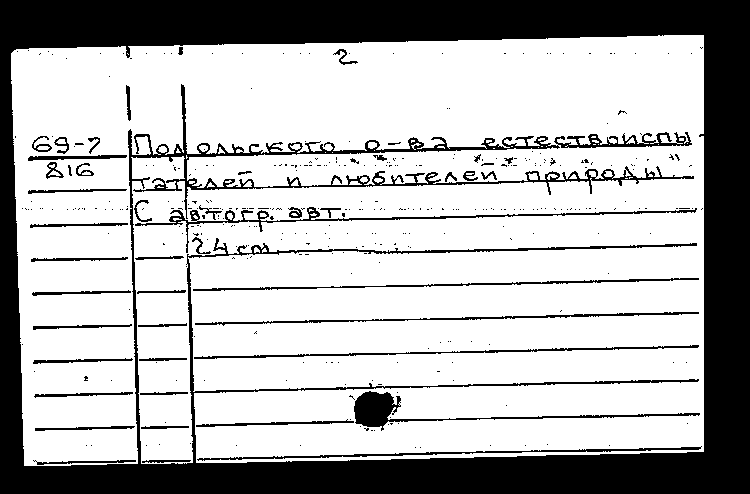 2
69-7 Подольского о-ва естествоиспы-
816 тателей и любителей природы".
С автогр. авт.
24 cm